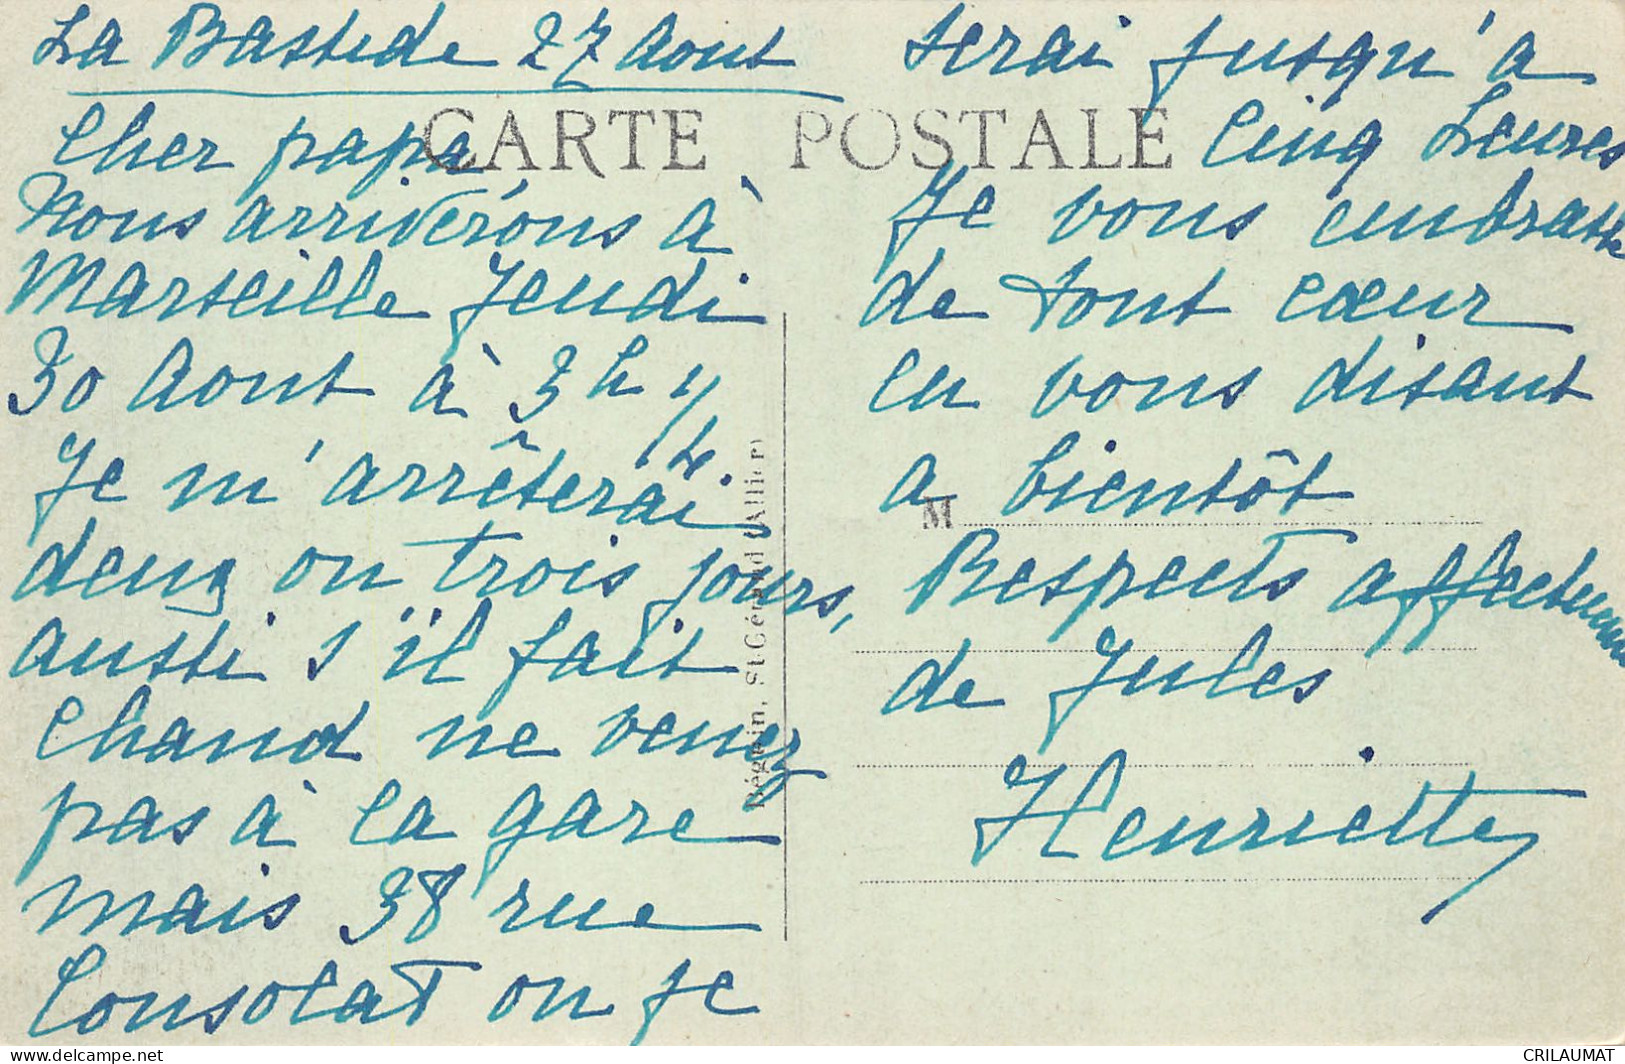 La Bastide 27 Aout
CARTE POSTALE
Cher papa
Nous arriverons à
Marseille Jeudi
30 Aout à 3h 1/4.
Je m'arrêterai
deux ou trois jours,
aussi s'il fait
chaud ne venez
pas à la gare
mais 38 rue
Consolat ou je
serai jusqu'a
cinq heures
Je vous embrasse
de tout cœur
en vous disant
a bientôt
M
Respects affectueux
de Jules
Henriette
Béguin, St-Gérand (Allier)
CRILAUMAT